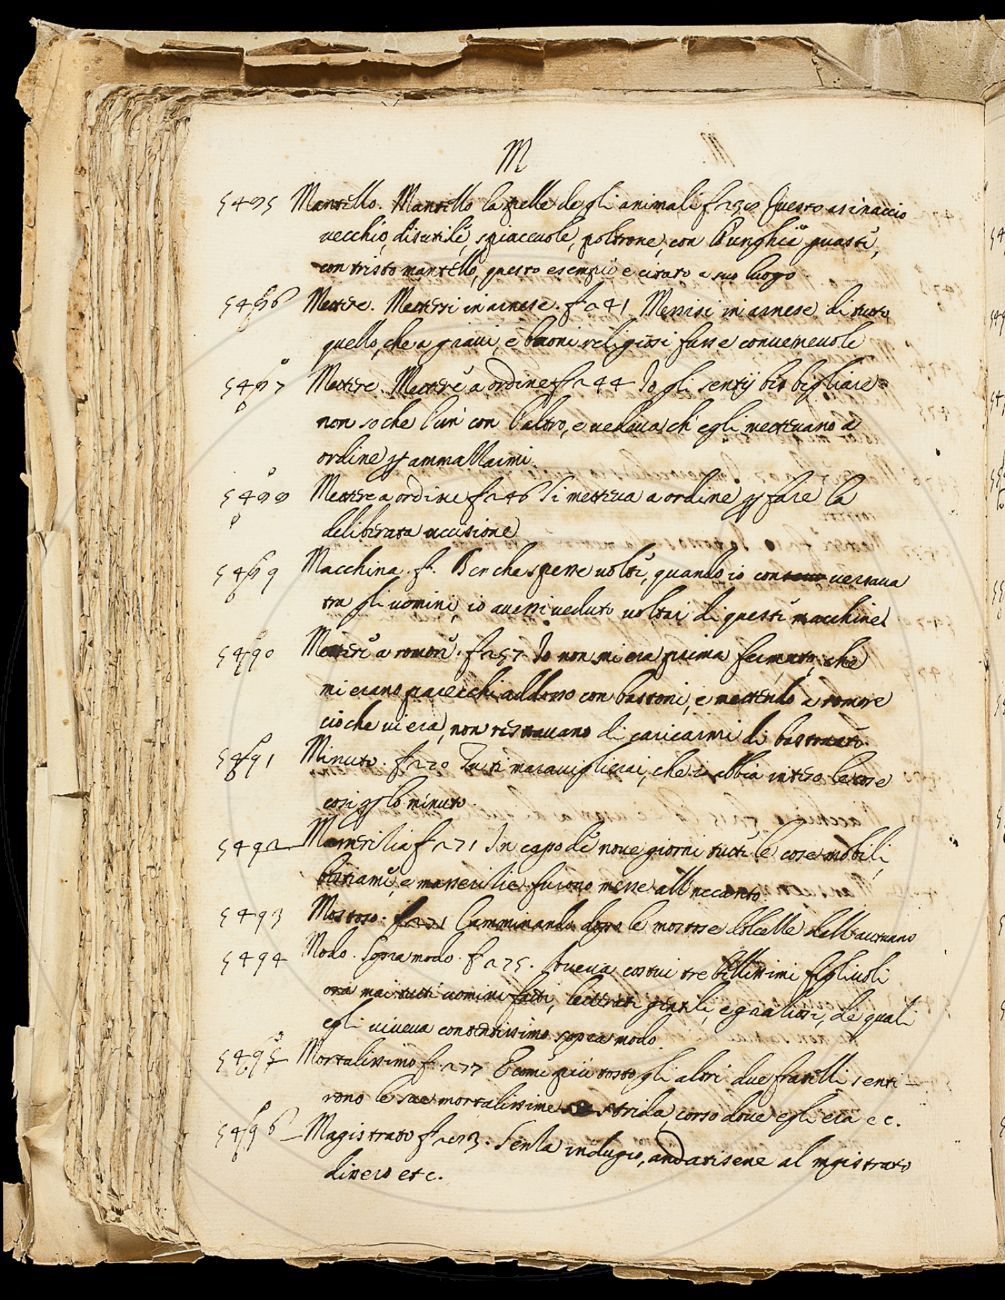 M
5485 Mantello. Mantello la pelle degli animali f. 250 Questo asinaccio
vecchio, disutile, spiaceuole, poltrone, con l'unghie guaste,
con tristo mantello, questo esempio è citato a suo luogo
5486 Mettere. Mettersi in arnese. f. 241 Messisi in arnese di tutto
quello, che a graui, e buoni religiosi fusse conueneuole
5487 Mettere. Mettere a ordine f. 244 Io gli sentij bisbigliare
non so che l'un con l'altro, e vedeua ch'egli metteuano a
ordine p ammazzarmi.
5488 Mettere a ordine f. 246 Si metteua a ordine p fare la
deliberata uccisione
5489 Macchina. f. Benche spesse uolte, quando io conuersaua
tra gli uomini, io auessi ueduto uoltar di queste macchine
5490 Mettere a romore. f. 257 Io non mi era prima fermato, che
mi erano parecchi addosso con bastoni, e mettendo a romore
cio che ui era, non restauano di caricarmi di bastonate.
5491 Minuto. f. 270 Tu ti marauiglierai, che abbia inteso le cose
cosi p lo minuto.
5492 Masserizia f. 271 In capo di noue giorni tutte le cose mobili,
bestiame e masserizie furono messe all'incanto.
5493 Mostoso. f. 271 Camminando dopo le mostose dell'autunno
5494 Modo. Sopra modo. f. 275. Aueua costui tre bellissimi figliuoli
ora mai tutti uomini fatti, letterati gentili, e graziosi, de quali
egli viueua contentissimo sopra modo
5495 Mortalissimo f. 277 E come piu tosto gli altri due fratelli senti-
rono le sue mortalissime strida, corso doue egli era ec.
5496 Magistrato f. 283. Senza indugio, andatisene al magistrato
dissero etc.